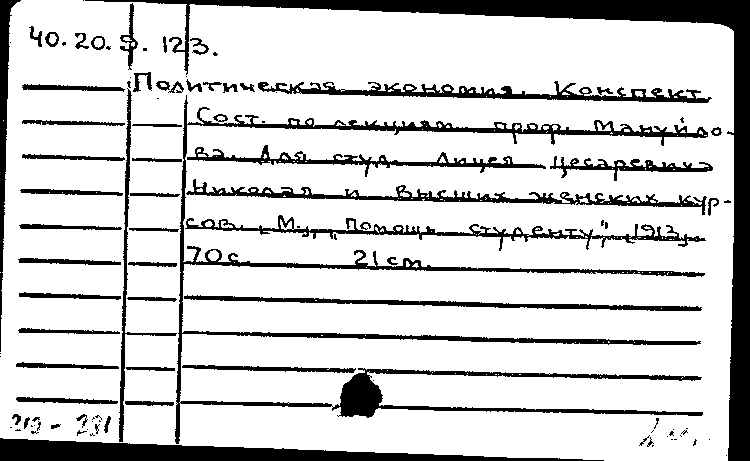 40.20.5.123.
Политическая экономия. Конспект.
Сост. по лекциям проф. Мануйло-
ва. Для студ. Лицея Цесаревича
Николая и высших женских кур-
сов. М., „Помощь студенту", 1913.
70 с. 21 см.
219 - 231